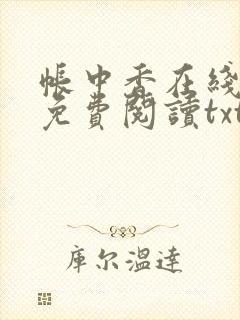 帳中香在綫
免費閱讀txt
庫尔溫達